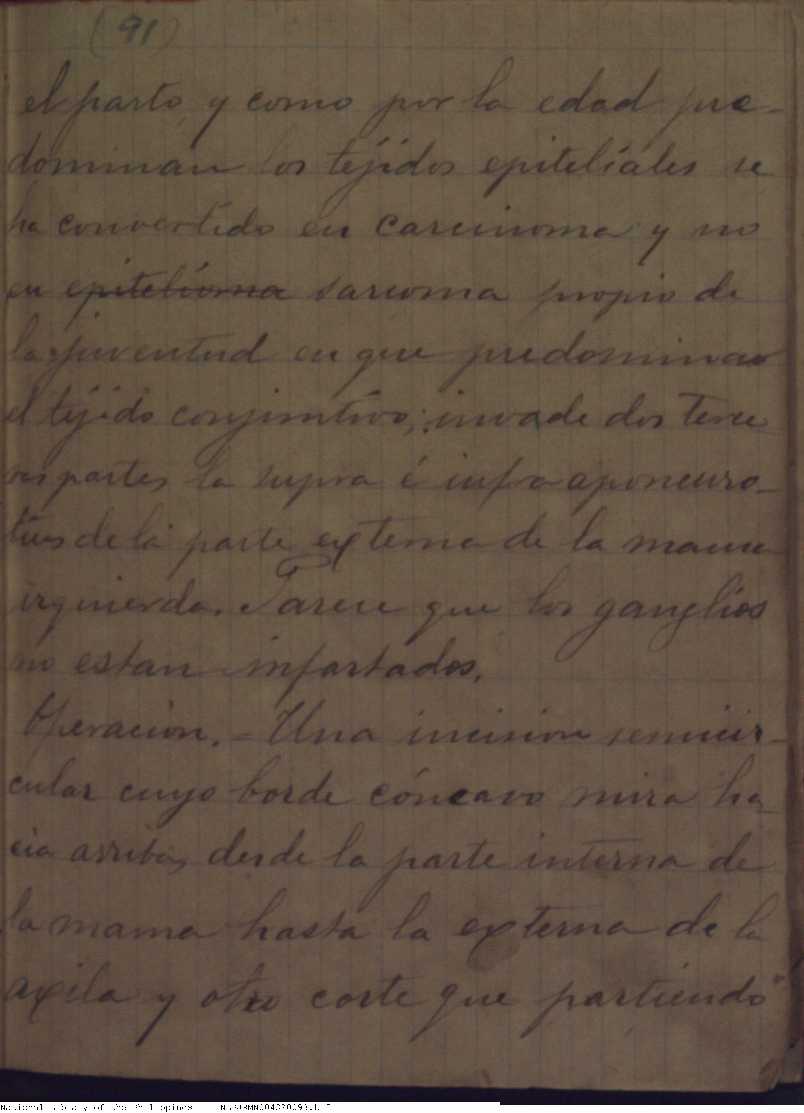 (91)
el parto, y como por la edad pre-
dominan los tejidos epiteliales se
ha convertido en carcinoma y no
en epitelioma sarcoma propio de
la juventud en que predominan
el tejido conjuntivo; invade dos terce
ras partes la supra é infra aponeuro-
ticas de la parte externa de la mama
izquierda. Parece que los ganglios
no estan infartados.
Operación. = Una incision semicir-
cular cuyo borde cóncavo mira ha-
cia arriba, desde la parte interna de
la mama hasta la externa de la
axila y otro corte que partiendo
National Library of the Philippines